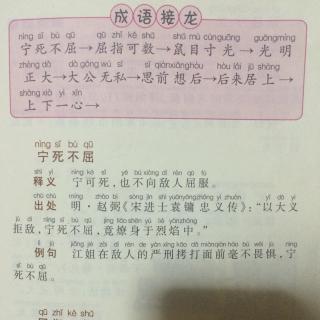 成语接龙
nìng sǐ bù qū qū zhǐ kě shǔ shǔ mù cùn guāng guāng míng
宁死不屈→屈指可数→鼠目寸光→光明
zhèng dà dà gōng wú sī sī qián xiǎng hòu hòu lái jū shàng
正大→大公无私→思前想后→后来居上→
shàng xià yì xīn
上下一心→
nìng sǐ bù qū
宁死不屈
shì yì nìng kě sǐ yě bú xiàng dí rén qū fú
释义 宁可死,也不向敌人屈服。
chū chù míng zhào bì sòng jìn shì yuán yōng zhōng yì zhuàn yǐ dà yì
出处 明·赵弼《宋进士袁镛忠义传》:“以大义
jù dí nìng sǐ bù qū jìng liáo shēn yú liè yàn zhōng
拒敌,宁死不屈,竟燎身于烈焰中。”
lì jù jiāng jiě zài dí rén de yán xíng kǎo dǎ miàn qián háo bú wèi jù nìng
例句 江姐在敌人的严刑拷打面前毫不畏惧,宁
sǐ bù qū
死不屈。
qū zhǐ kě shǔ